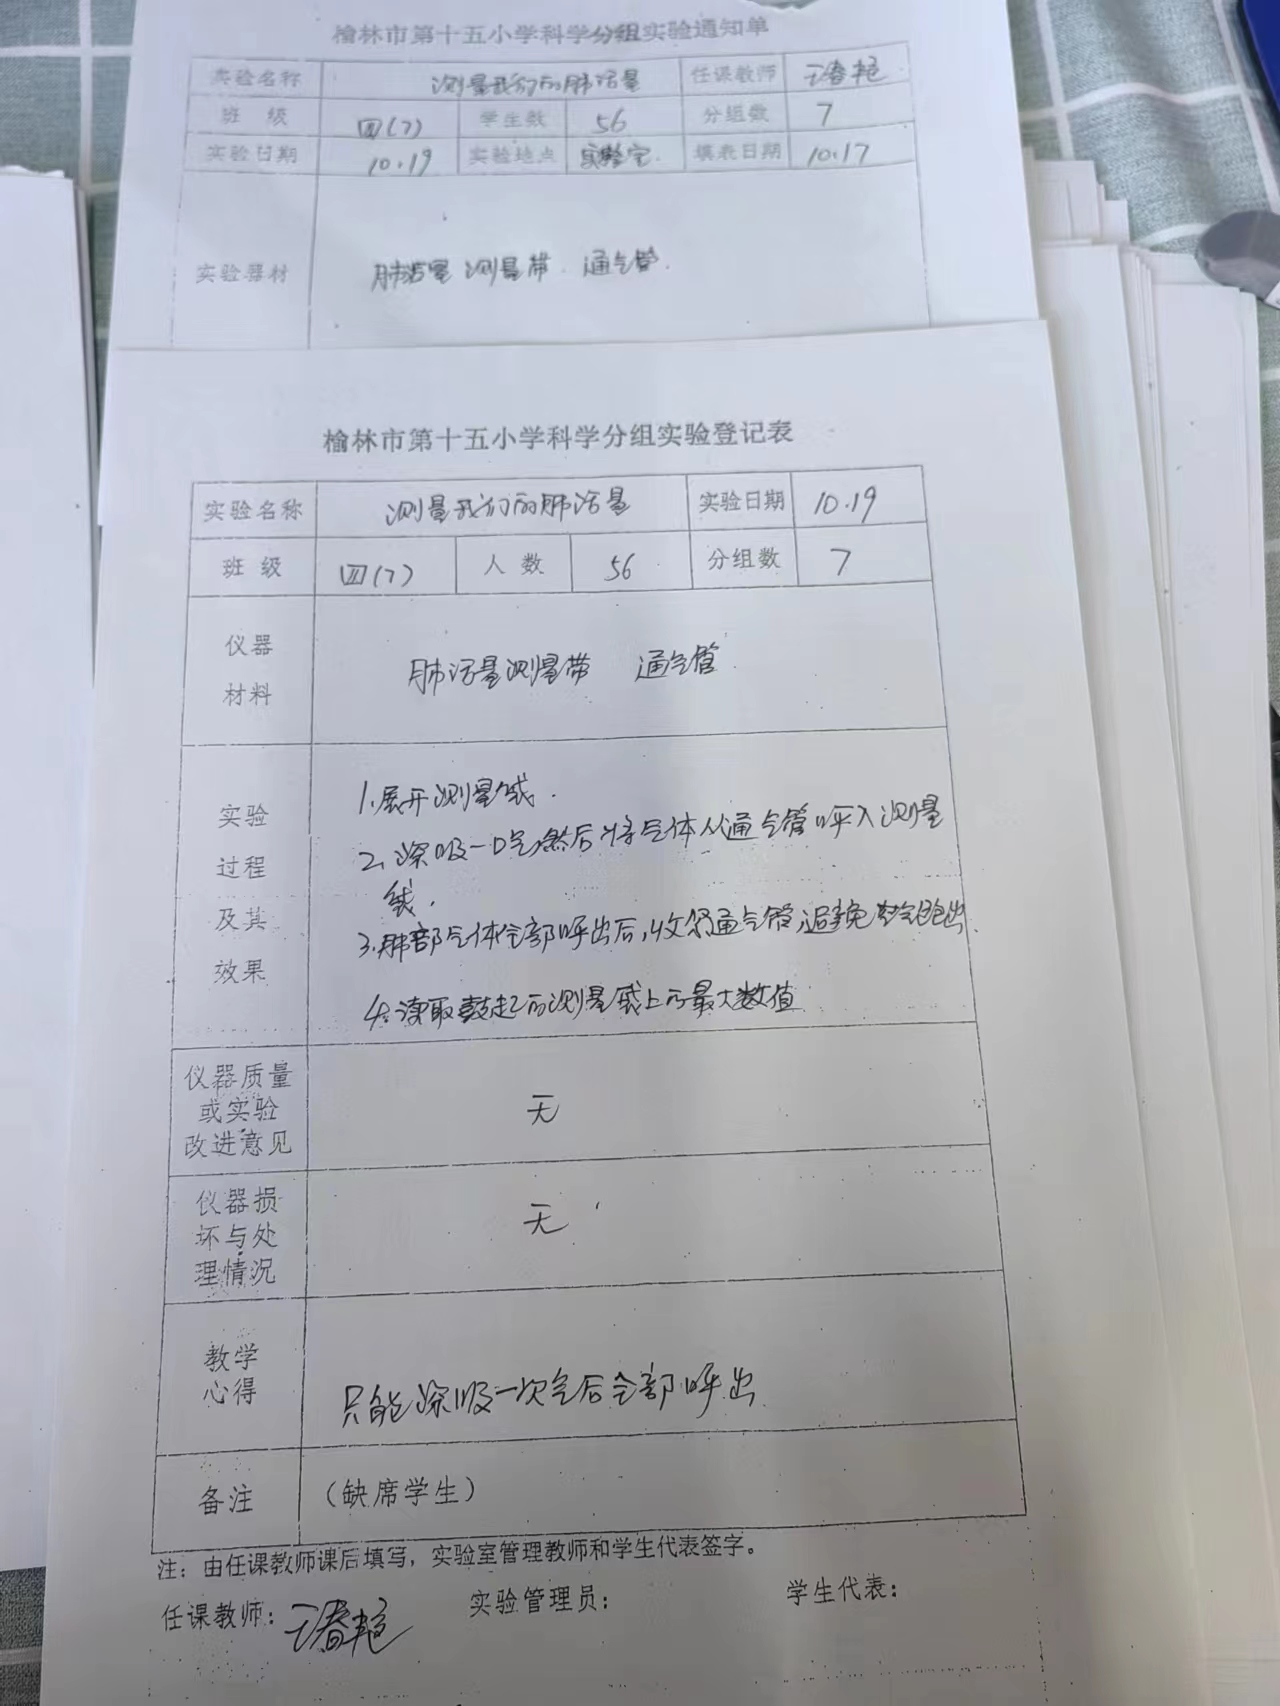 榆林市第十五小学科学分组实验通知单
实验名称 测量我们的肺活量 任课教师 王春艳
班 级 四(7) 学生数 56 分组数 7
实验日期 10.19 实验地点 实验室. 填表日期 10.17
实验器材 肺活量 测量带 通气管.
榆林市第十五小学科学分组实验登记表
实验名称 测量我们的肺活量 实验日期 10.19
班 级 四(7) 人 数 56 分组数 7
仪器
材料
肺活量测量带 通气管.
实验
过程
及其
效果
1.展开测量袋.
2.深吸一口气,然后将气体从通气管呼入测量
袋.
3.肺部气体全部呼出后,收紧通气管,避免空气跑出.
4.读取鼓起的测量袋上的最大数值
仪器质量
或实验
改进意见
无
仪器损
坏与处
理情况
无
教学
心得
只能深吸一次气后全部呼出
备注 （缺席学生）
注：由任课教师课后填写，实验室管理教师和学生代表签字。
任课教师：王春艳 实验管理员： 学生代表：